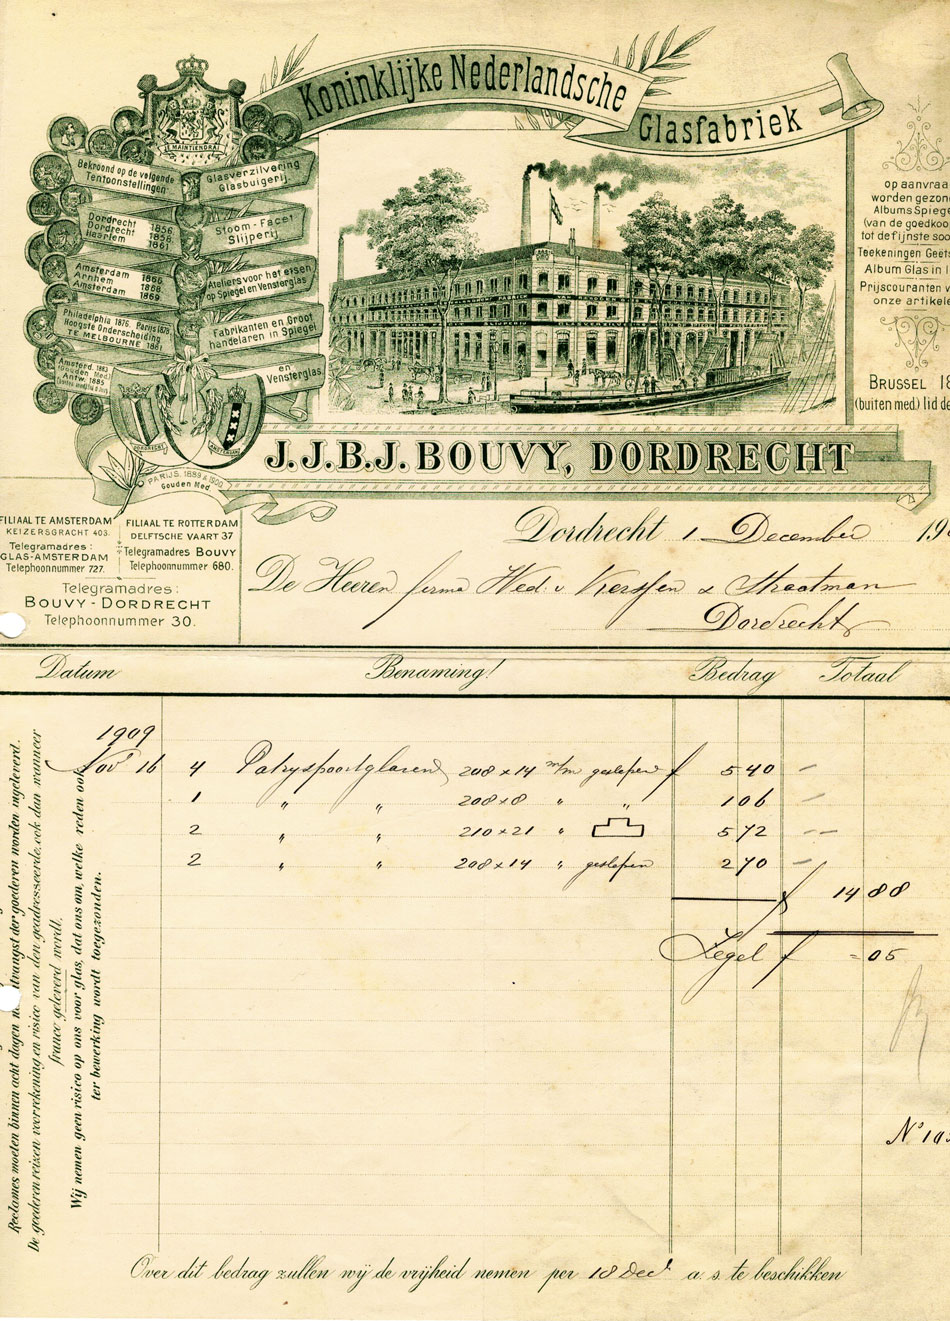 Koninklijke Nederlandsche
Glasfabriek
MAINTIENDRAI
Bekroond op de volgende
Tentoonstellingen
Dordrecht 1856
Dordrecht 1859
Haarlem 1861
Amsterdam 1866
Arnhem 1868
Amsterdam 1869
Philadelphia 1876. Parijs 1878
Hoogste Onderscheiding
TE MELBOURNE 1881
Amsterd. 1883
(Gouden Med.)
Antw. 1885
Glasverzilvering
Glasbuigerij
Stoom-Facet
Slijperij
Ateliers voor het etsen
op Spiegel en Vensterglas
Fabrikanten en Groot
handelaren in Spiegel
en
Vensterglas
DORDRECHT
AMSTERDAM
PARIJS. 1889 & 1900.
Gouden Med.
op aanvraa
worden gezon
Albums Spiege
(van de goedkoo
tot de fijnste soo
Teekeningen Geets
Album Glas in l
Prijscouranten v
onze artikele
BRUSSEL 18
(buiten med.) lid de
J.J.B.J. BOUVY, DORDRECHT
FILIAAL TE AMSTERDAM
KEIZERSGRACHT 403.
Telegramadres:
GLAS-AMSTERDAM
Telephoonnummer 727.
FILIAAL TE ROTTERDAM
DELFTSCHE VAART 37
Telegramadres BOUVY
Telephoonnummer 680.
Telegramadres:
BOUVY-DORDRECHT
Telephoonnummer 30.
Dordrecht 1 December 190
De Heeren firma Wed. v Kersfen & Straatman
Dordrecht
Datum Benaming! Bedrag Totaal
1909
Nov 16 4 Patrijspoortglazen 208 x 14 m/m geslepen f 540 –
1 " " 208 x 8 " " 106 –
2 " " 210 x 21 " 572 –
2 " " 208 x 14 " geslepen 270 –
f 1488
Zegel f = 05
No 10
Reclames moeten binnen acht dagen na ontvangst der goederen worden ingeleverd.
De goederen reizen voor rekening en risico van den geadresseerde, ook dan wanneer
franco geleverd wordt.
Wij nemen geen risico op ons voor glas, dat ons om, welke reden ook,
ter bewerking wordt toegezonden.
Over dit bedrag zullen wij de vrijheid nemen per 18 Dec a. s. te beschikken